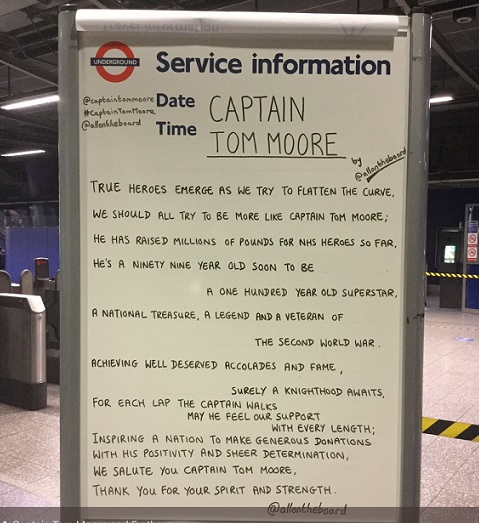 UNDERGROUND
Service information
@captaintommoore
#CaptainTomMoore
@allontheboard
Date
Time
CAPTAIN
TOM MOORE
by
@allontheboard
TRUE HEROES EMERGE AS WE TRY TO FLATTEN THE CURVE,
WE SHOULD ALL TRY TO BE MORE LIKE CAPTAIN TOM MOORE;
HE HAS RAISED MILLIONS OF POUNDS FOR NHS HEROES SO FAR,
HE'S A NINETY NINE YEAR OLD SOON TO BE
A ONE HUNDRED YEAR OLD SUPERSTAR,
A NATIONAL TREASURE, A LEGEND AND A VETERAN OF
THE SECOND WORLD WAR.
ACHIEVING WELL DESERVED ACCOLADES AND FAME,
SURELY A KNIGHTHOOD AWAITS,
FOR EACH LAP THE CAPTAIN WALKS
MAY HE FEEL OUR SUPPORT
WITH EVERY LENGTH;
INSPIRING A NATION TO MAKE GENEROUS DONATIONS
WITH HIS POSITIVITY AND SHEER DETERMINATION,
WE SALUTE YOU CAPTAIN TOM MOORE,
THANK YOU FOR YOUR SPIRIT AND STRENGTH.
@allontheboard